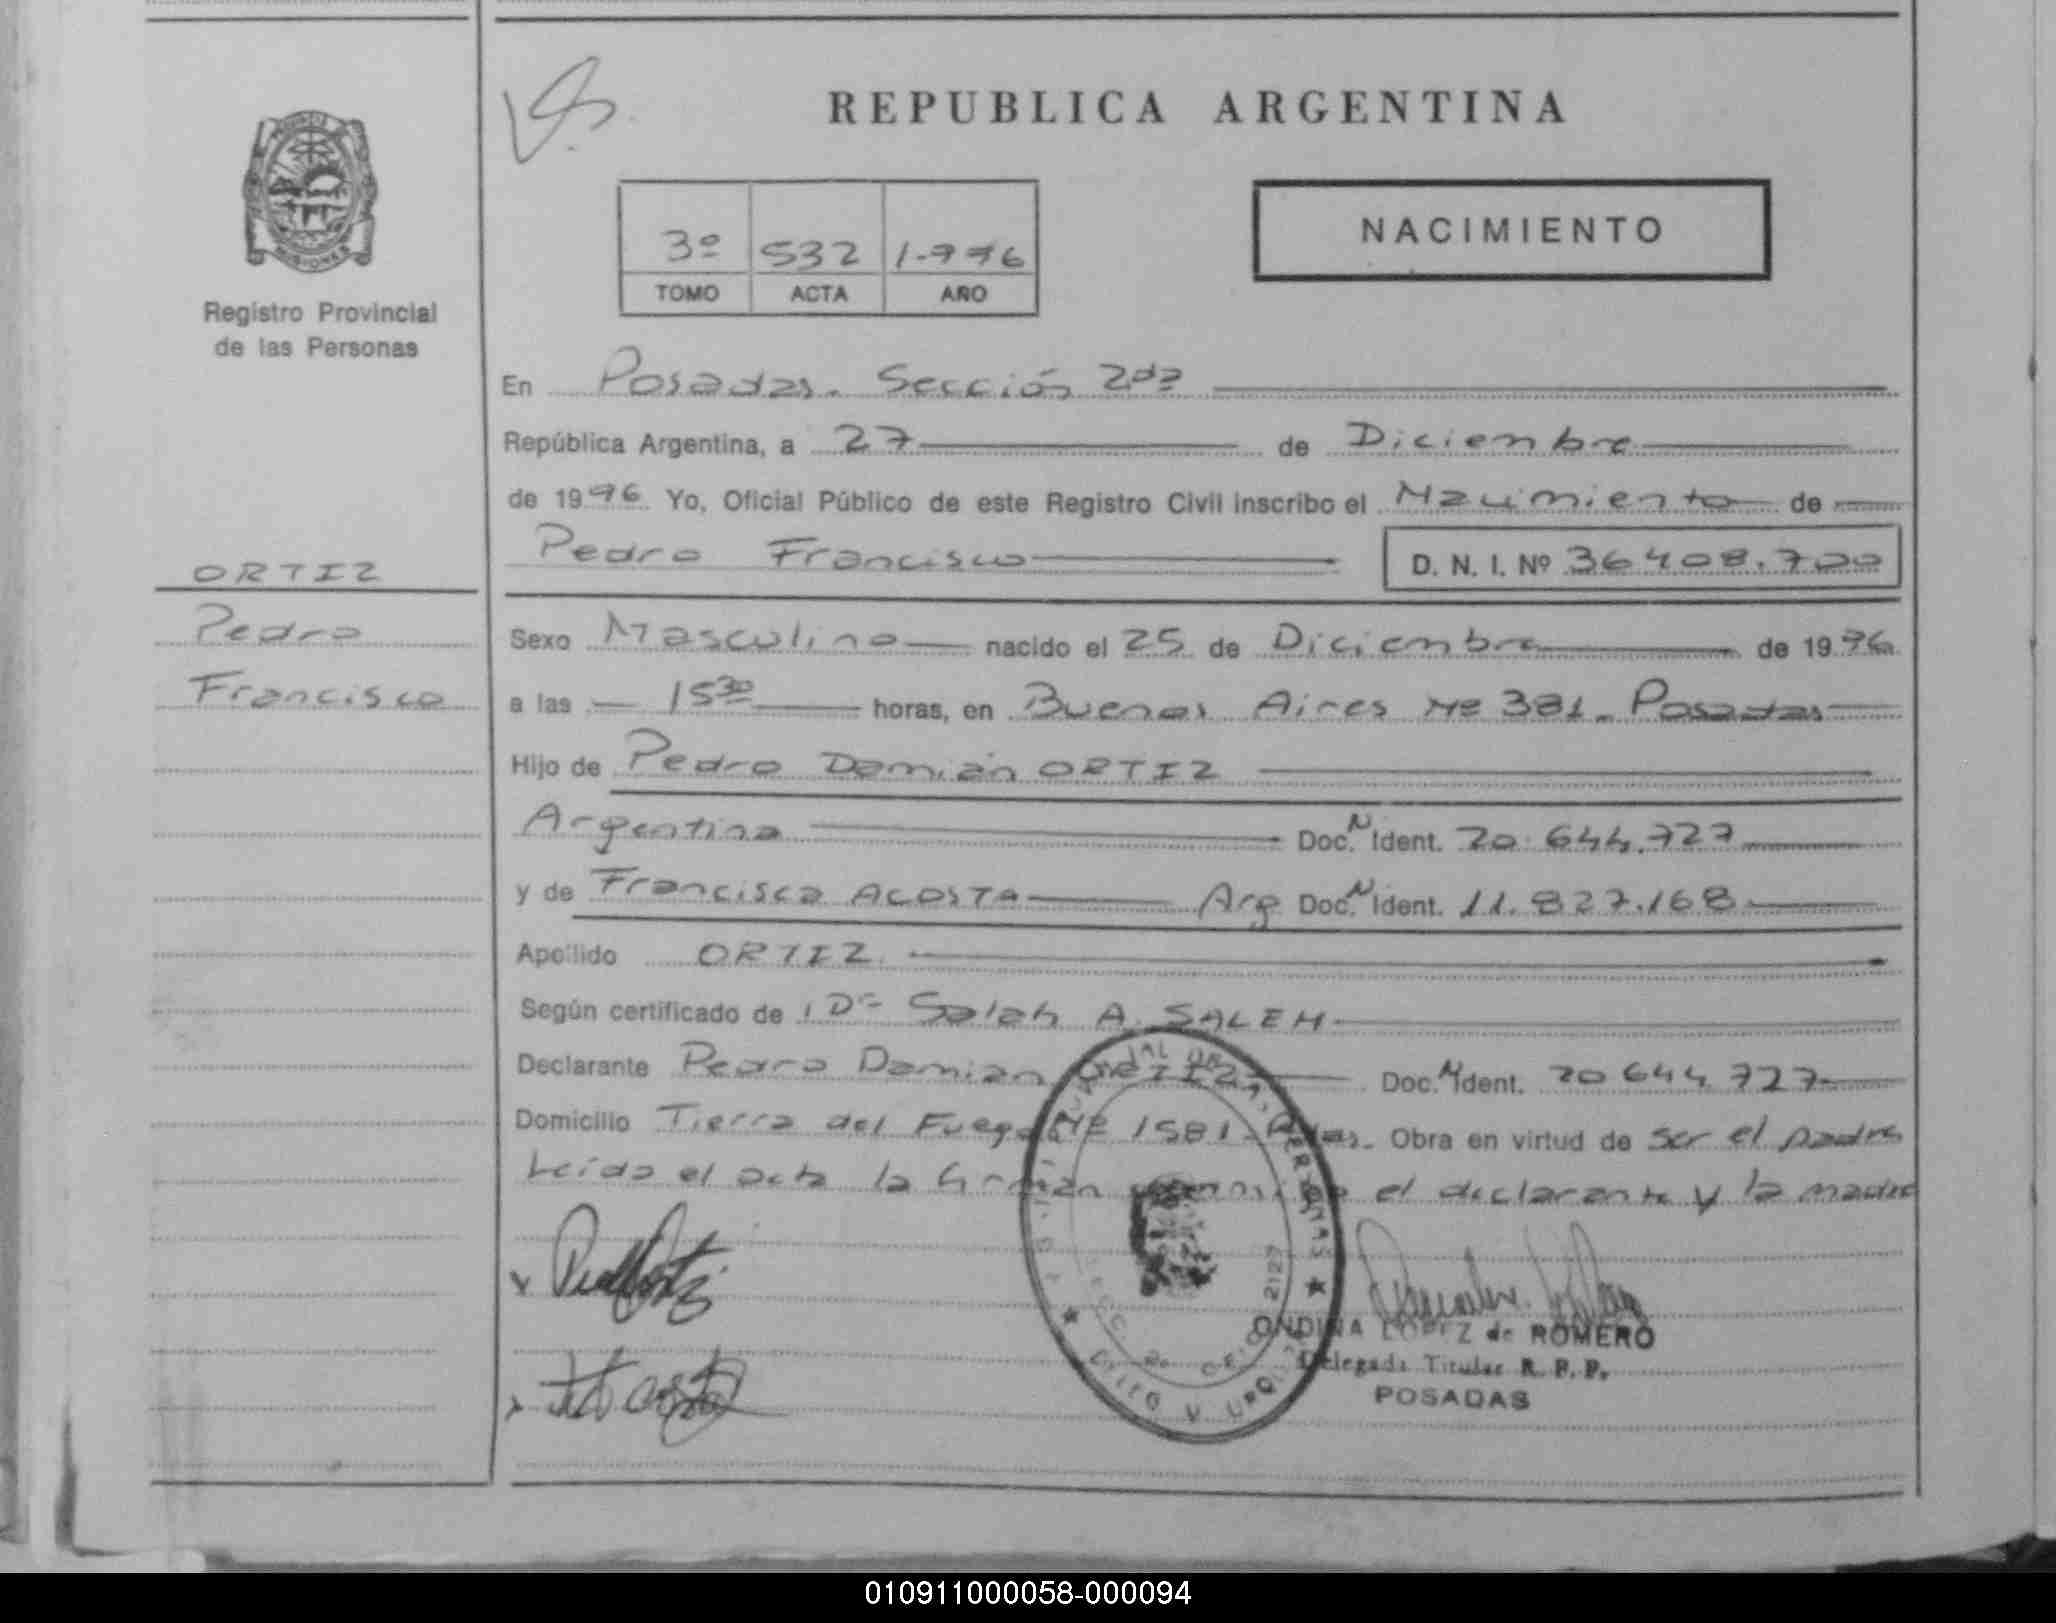 REPUBLICA ARGENTINA
NACIMIENTO
3º 532 1.996
TOMO ACTA AÑO
MISIONES
Registro Provincial
de las Personas
En Posadas. Sección 2da
República Argentina, a 27 de Diciembre
de 1996 Yo, Oficial Público de este Registro Civil inscribo el Nacimiento de
Pedro Francisco D. N. I. Nº 36408.700
ORTIZ
Pedro
Francisco
Sexo Masculino nacido el 25 de Diciembre de 1996
a las 15 30 horas, en Buenos Aires Nº 381. Posadas
Hijo de Pedro Damián ORTIZ
Argentina Doc. N Ident. 20.644.727
y de Francisca ACOSTA Arg Doc. N Ident. 11.827.168
Apellido ORTIZ
Según certificado de Dr Salah A. SALEH
Declarante Pedro Damian ORTIZ Doc. N Ident. 20 644 727
Domicilio Tierra del Fuego Nº 1581 Obra en virtud de ser el padre
Leída el acta la firman el declarante y la madre
ONDINA LOPEZ de ROMERO
Delegada Titular R. P. P.
POSADAS
010911000058-000094